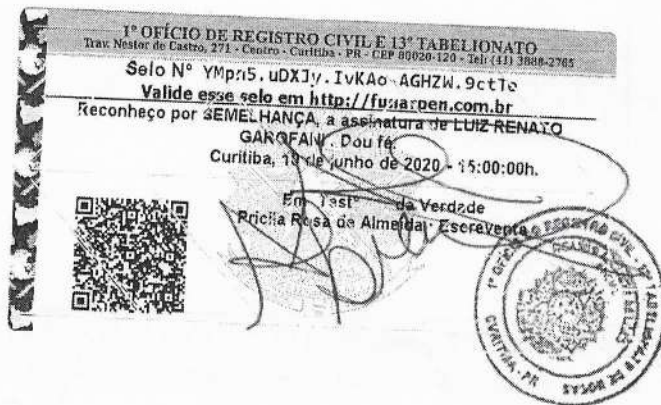 1º OFÍCIO DE REGISTRO CIVIL E 13º TABELIONATO
Trav. Nestor de Castro, 271 - Centro - Curitiba - PR - CEP 80020-120 - Tel: (41) 3888-2765
Selo Nº YMpn5.uDXJy.IvKAo-AGHZW.9ctTe
Valide esse selo em http://funarpen.com.br
Reconheço por SEMELHANÇA, a assinatura de LUIZ RENATO
GAROFANI. Dou fé.
Curitiba, de junho de 2020 - 15:00:00h.
Em Testº da Verdade
Pricila Rosa de Almeida - Escrevente
1º OFÍCIO DO REGISTRO CIVIL - 13º TABELIONATO DE NOTAS
CURITIBA - PR